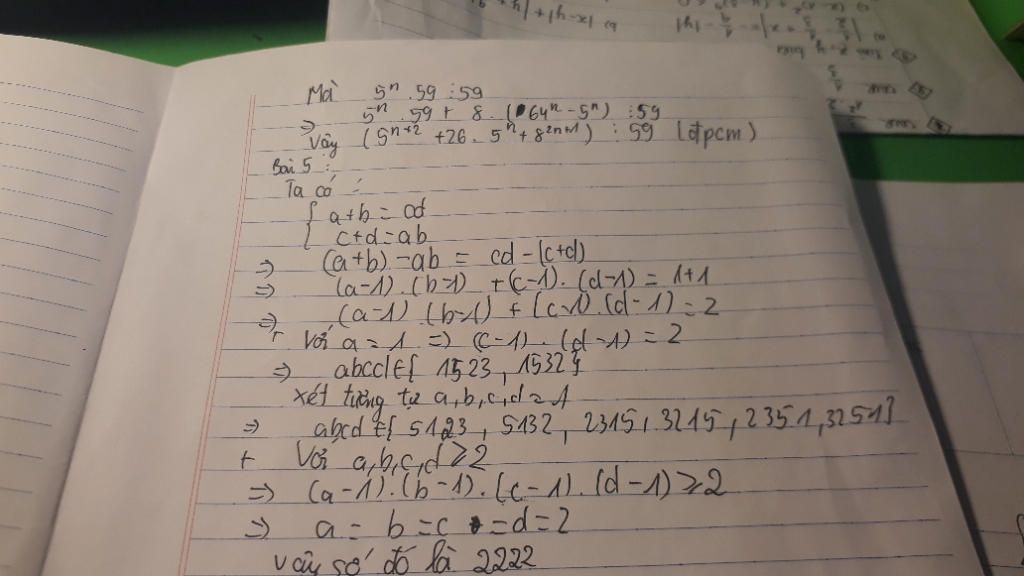 Mà 5ⁿ . 59 ⋮ 59
⇒ 5ⁿ . 59 + 8 . (64ⁿ - 5ⁿ) ⋮ 59
Vậy (5ⁿ⁺² + 26 . 5ⁿ + 8²ⁿ⁺¹) ⋮ 59 (đpcm)
Bài 5 :
Ta có :
{ a+b = cd
c+d = ab
⇒ (a+b) - ab = cd - (c+d)
⇒ (a-1) . (b-1) + (c-1) . (d-1) = 1+1
⇒ (a-1) . (b-1) + (c-1) . (d-1) = 2
+ Với a = 1 ⇒ (c-1) . (d-1) = 2
⇒ abcd ∈ { 1523 , 1532 }
xét tương tự a,b,c,d = 1
⇒ abcd ∈ { 5123 , 5132 , 2315 , 3215 , 2351 , 3251 }
+ Với a,b,c,d ≥ 2
⇒ (a-1) . (b-1) . (c-1) . (d-1) ≥ 2
⇒ a = b = c = d = 2
Vậy số đó là 2222